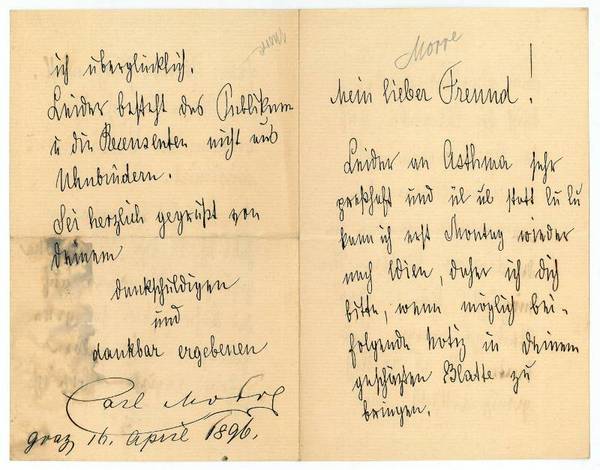 Morre
ich überglücklich.
Leider besteht das Publikum
u die Rezensenten nicht aus
Uhubrüdern.
Sei herzlich gegrüßt von
Deinem
dankschuldigen
und
dankbar ergebenen
Carl Morre
Graz 16. April 1896.
Morre
Mein lieber Freund!
Leider an Asthma sehr
preßhaft und ul ul statt Lu Lu
kann ich erst Montag wieder
nach Wien, daher ich Dich
bitte, wenn möglich bei-
folgende Notiz in Deinem
geschätzten Blatte zu
bringen.